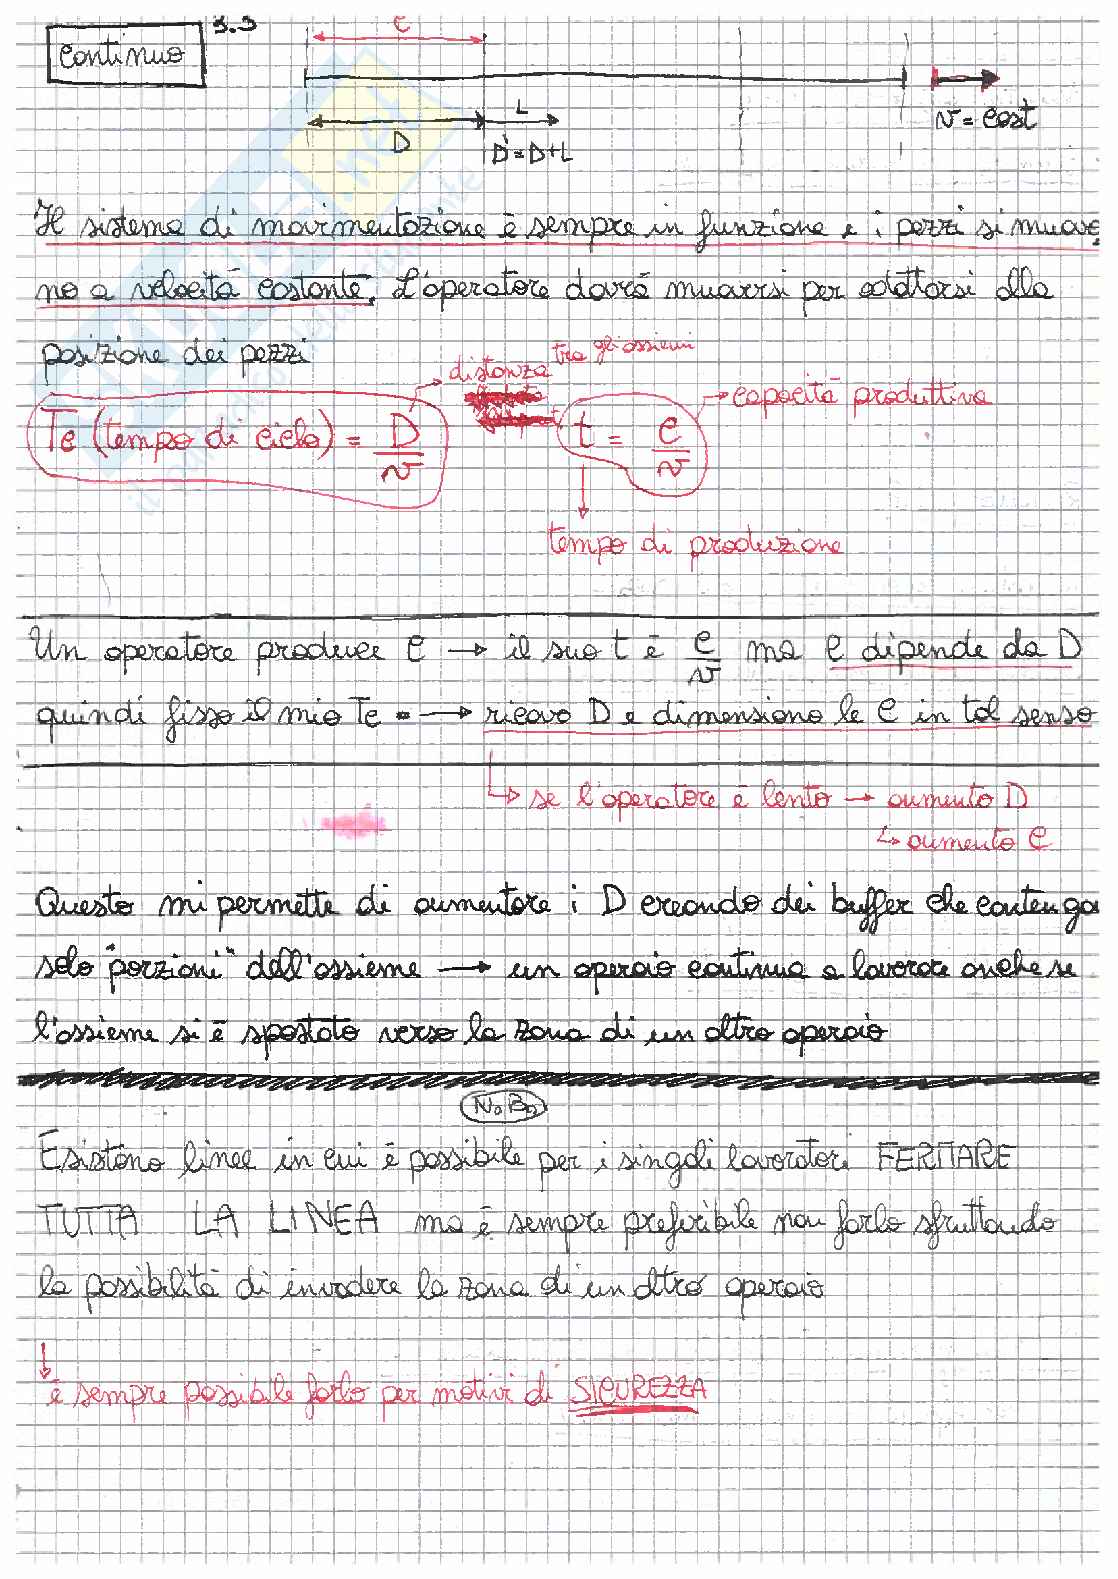 continuo
C
D
L
D'=D+L
v = cost
Il sistema di movimentazione è sempre in funzione e i pezzi si muovo
no a velocità costante. L'operatore dovrà muoversi per adattarsi alla
posizione dei pezzi
distanza tra gli assiemi
capacità produttiva
Tc (tempo di ciclo) = D/v
t = C/v
tempo di produzione
Un operatore produce C → il suo t è C/v ma C dipende da D
quindi fisso il mio Tc → ricavo D e dimensiono le C in tal senso
↳ se l'operatore è lento → aumento D
↳ aumento C
Questo mi permette di aumentare i D creando dei buffer che contenga
solo "porzioni" dell'assieme → un operaio continua a lavorare anche se
l'assieme si è spostato verso la zona di un altro operaio
N.B.
Esistono linee in cui è possibile per i singoli lavoratori FERMARE
TUTTA LA LINEA ma è sempre preferibile non farlo sfruttando
la possibilità di invadere la zona di un altro operaio
↓
è sempre possibile farlo per motivi di SICUREZZA